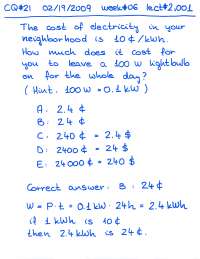 CQ#21 02/19/2009 week#06 lect#2.001
The cost of electricity in your
neighborhood is 10 ¢/kWh.
How much does it cost for
you to leave a 100 W lightbulb
on for the whole day?
(Hint: 100 W = 0.1 kW)
A: 2.4 ¢
B: 24 ¢
C: 240 ¢ = 2.4 $
D: 2400 ¢ = 24 $
E: 24000 ¢ = 240 $
Correct answer: B: 24 ¢
W = P·t = 0.1 kW · 24 h = 2.4 kWh
if 1 kWh is 10 ¢
then 2.4 kWh is 24 ¢.